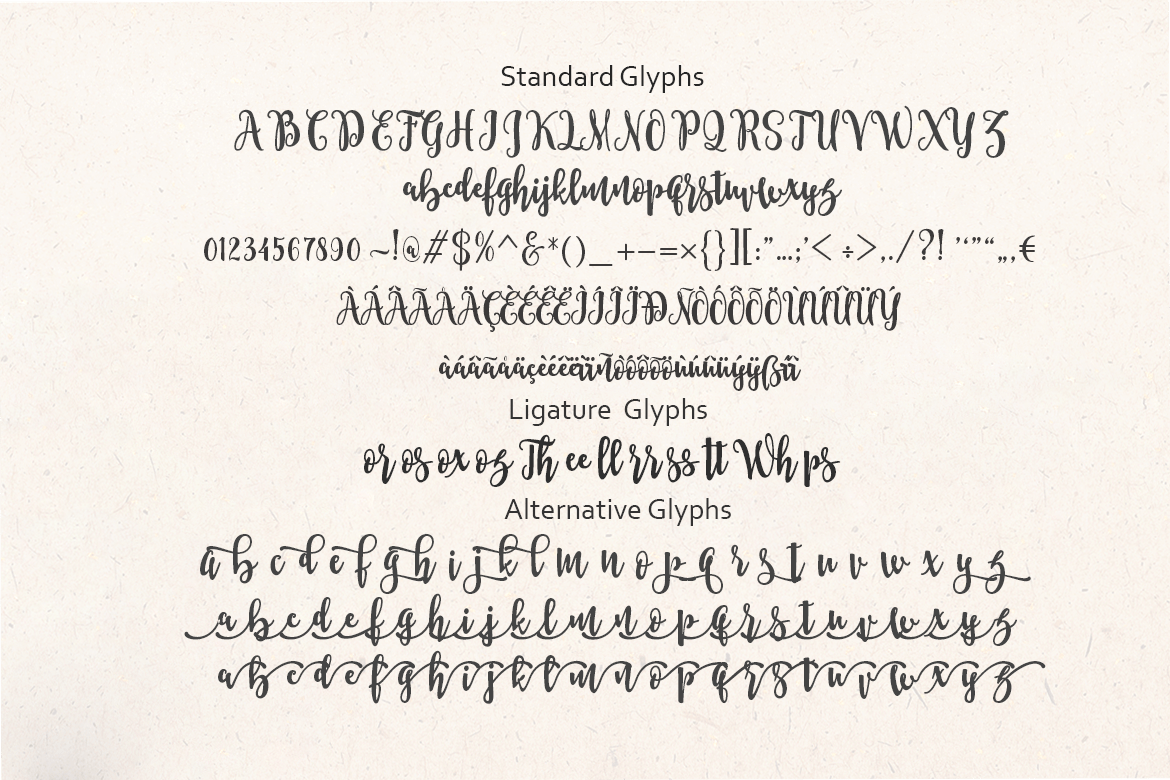 Standard Glyphs
A B C D E F G H I J K L M N O P Q R S T U V W X Y Z
abcdefghijklmnopqrstuvwxyz
01234567890 ~!@#$%^&*()_+-=×{}][:"...;'< ÷>,./?! '‘"”“„,€
ÀÁÂÃÅÄÇÈÉÊËÌÍÎÏÐÑÒÓÔÕÖÙÚÛÜÝ
Ligature Glyphs
or os ox oz Th ee ll rr ss tt Wh ps
Alternative Glyphs
a b c d e f g h i j k l m n o p q r s t u v w x y z
a b c d e f g h i j k l m n o p q r s t u v w x y z
a b c d e f g h i j k l m n o p q r s t u v w x y z